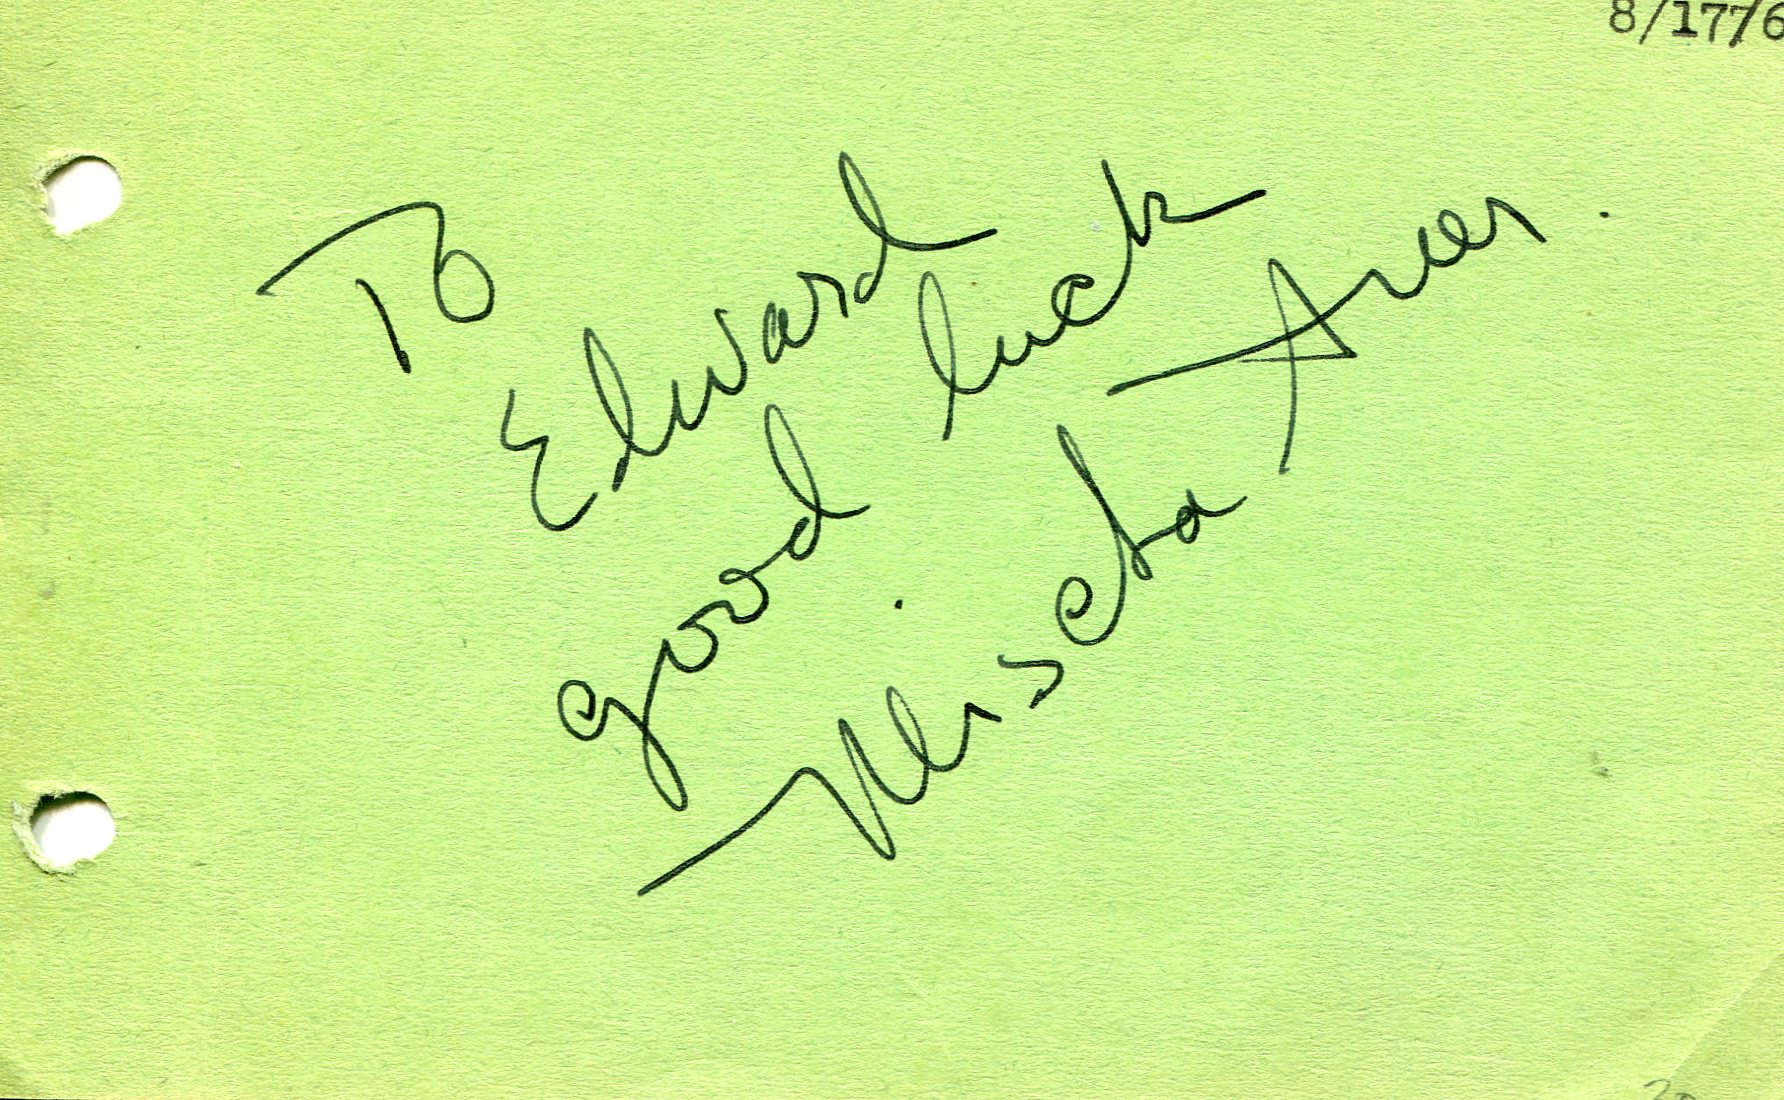 8/17/6
To
Edward
good luck
Mischa Auer.